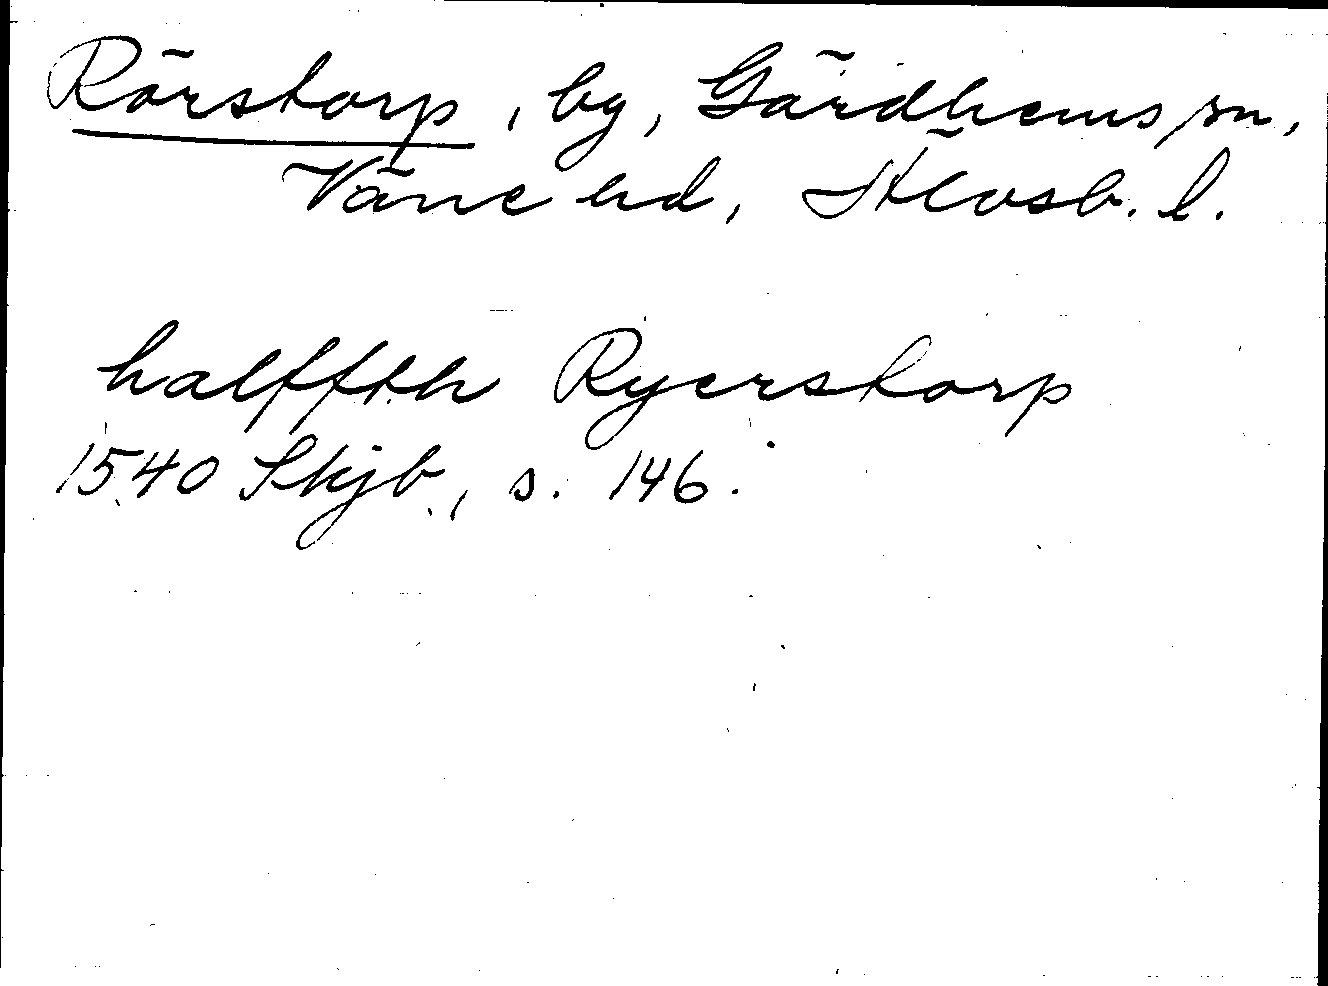 Rörstorp, by, Gärdhems sn,
Väne hd, Älvsb. l.
halffth Ryerstorp
1540 Skjb, s. 146.